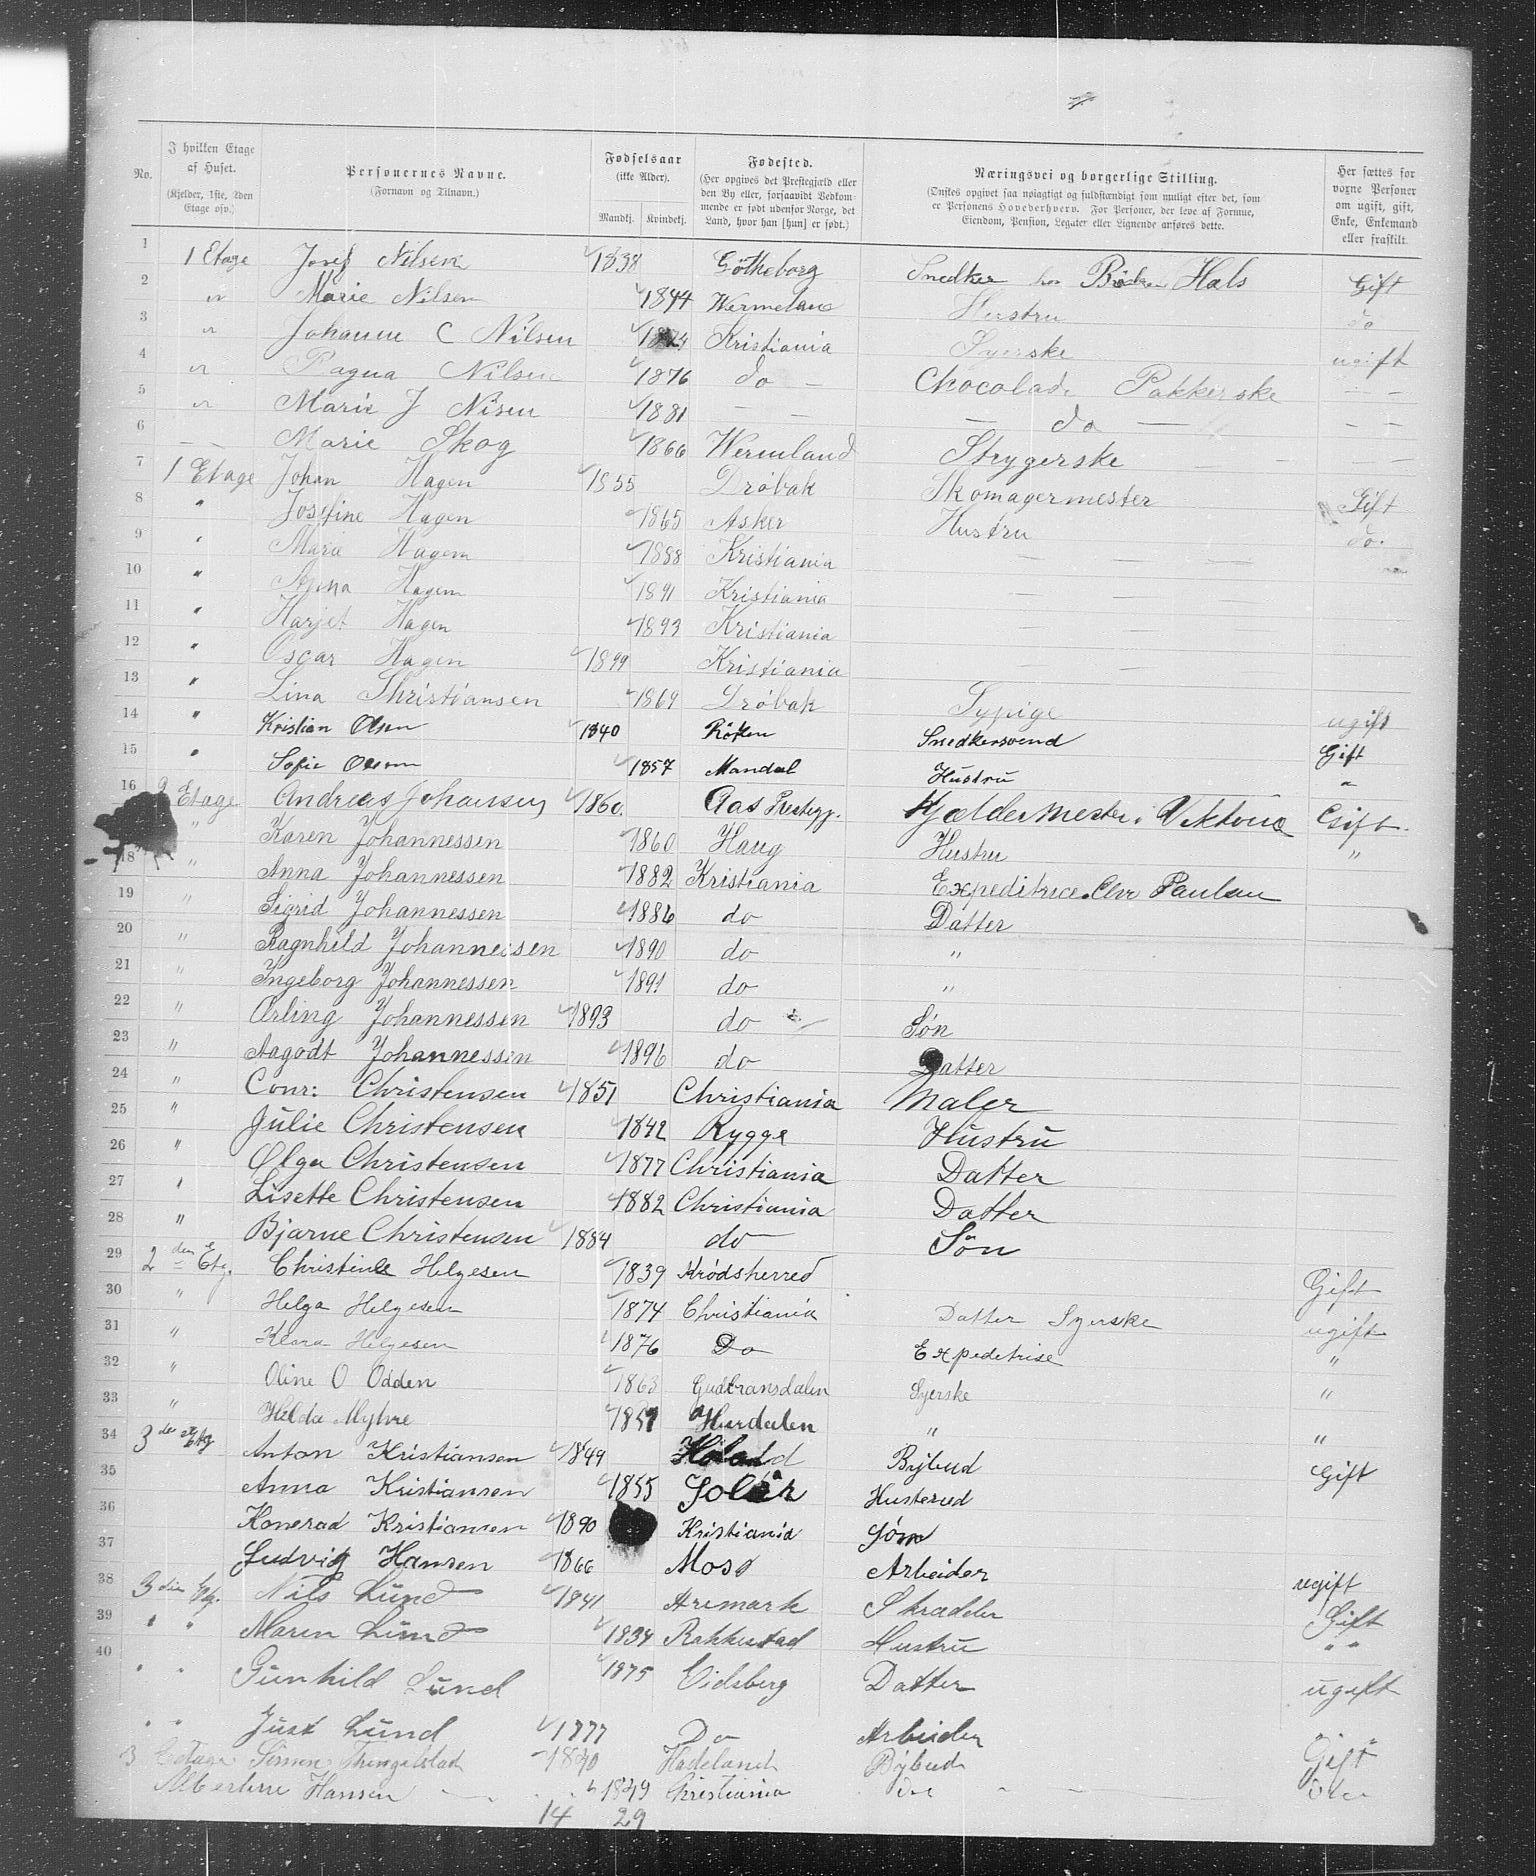 No. | I hvilken Etage af Huset. (Kjelder, 1ste, 2den Etage osv.) | Personernes Navne. (Fornavn og Tilnavn.) | Fødselsaar (ikke Alder). Mandkj. Kvindekj. | Fødested. (Her opgives det Prestegjæld eller den By eller, forsaavidt Vedkommende er født udenfor Norge, det Land, hvor han [hun] er født.) | Næringsvei og borgerlige Stilling. (Ønskes opgivet saa nøiagtigt og fuldstændigt som muligt efter det, som er Personens Hovederhverv. For Personer, der leve af Formue, Eiendom, Pension, Legater eller Lignende anføres dette. | Her sættes for voxne Personer om ugift, gift, Enke, Enkemand eller fraskilt.
1 | 1 Etage | Josef Nilsen | 1838 | Götheborg | Snedker hos Brødrene Hals | Gift
2 | " | Marie Nilsen | 1844 | Wermeland | Hustru | do
3 | " | Johanne C Nilsen | Kristiania | Syerske | ugift
4 | " | Ragna Nilsen | 1876 | do — | Chocolade Pakkerske | — —
5 | " | Marie J Nisen | 1881 | — — | — do — | — —
6 | — — | Marie Skog | 1866 | Wermland | Strygerske | — —
7 | 1 Etage | Johan Hagen | 1855 | Drøbak | Skomagermester | Gift
8 | " | Josefine Hagen | 1865 | Asker | Hustru | do.
9 | " | Maria Hagen | 1888 | Kristiania | — —
10 | " | Hagen | 1891 | Kristiania | — —
11 | " | Harjet Hagen | 1893 | Kristiania | — —
12 | " | Oscar Hagen | 1899 | Kristiania | —
13 | " | Lina Thristiansen | 1869 | Drøbak | Sypige | ugift
14 | " | Kristian Olsen | 1840 | Röken | Snedkersvend | Gift
15 | " | Sofie Olsen | 1857 | Mandal | Hustru | "
16 | 2 Etage | Andreas Johansen | 1860. | Aas Prestegj. | Kjældermester i Viktoria | Gift.
" | Karen Johannessen | 1860 | Haug | Hustru | "
18 | " | Anna Johannessen | 1882 | Kristiania | Expeditrice Chr Paulsen
19 | " | Sigrid Johannessen | 1886 | do | Datter
20 | " | Ragnhild Johannessen | 1890 | do | "
21 | " | Ingeborg Johannessen | 1891 | do | "
22 | " | Erling Johannessen | 1893 | do | Søn
23 | " | Aagodt Johannessen | 1896 | do | Datter
24 | " | Conr: Christensen | 1851 | Christiania | Maler
25 | " | Julie Christensen | 1842 | Rygge | Hustru
26 | " | Olga Christensen | 1877 | Christiania | Datter
27 | " | Lisette Christensen | 1882 | Christiania | Datter
28 | " | Bjarne Christensen | 1884 | do | Sön
29 | 2den Etg. | Christine Helgesen | 1839 | Krödsherred | Gift
30 | " | Helga Helgesen | 1874 | Christiania | Datter Syerske | ugift
31 | " | Klara Helgesen | 1876 | Do | Expedetrise | "
32 | " | Oline O Odden | 1863 | Gudbransdalen | Syerske | "
33 | " | Hilda Myhre | 1857 | Hurdalen | " | "
34 | 3die Etg | Anton Kristiansen | 1849 | Höland | Bybud | Gift
35 | Anna Kristiansen | 1855 | Solör | Husterud
36 | Konerad Kristiansen | 1890 | Kristiania | Søn
37 | Ludvig Hansen | 1866 | Moss | Arbeider | ugift
38 | 3die Etg. | Nils Lund | 1841 | Aremark | Skrædder | Gift
39 | " " | Maren Lund | 1834 | Rakkestad | Hustru | " "
40 | " " | Gunhild Lund | 1875 | Eidsberg | Datter | ugift
" " | Just Lund | 1877 | Do | Arbeider
3 Etage | Simen Thingelstad | 1840 | Hadeland | Bybud | Gift
Albertine Hansen | 1849 | Christiania
14 29